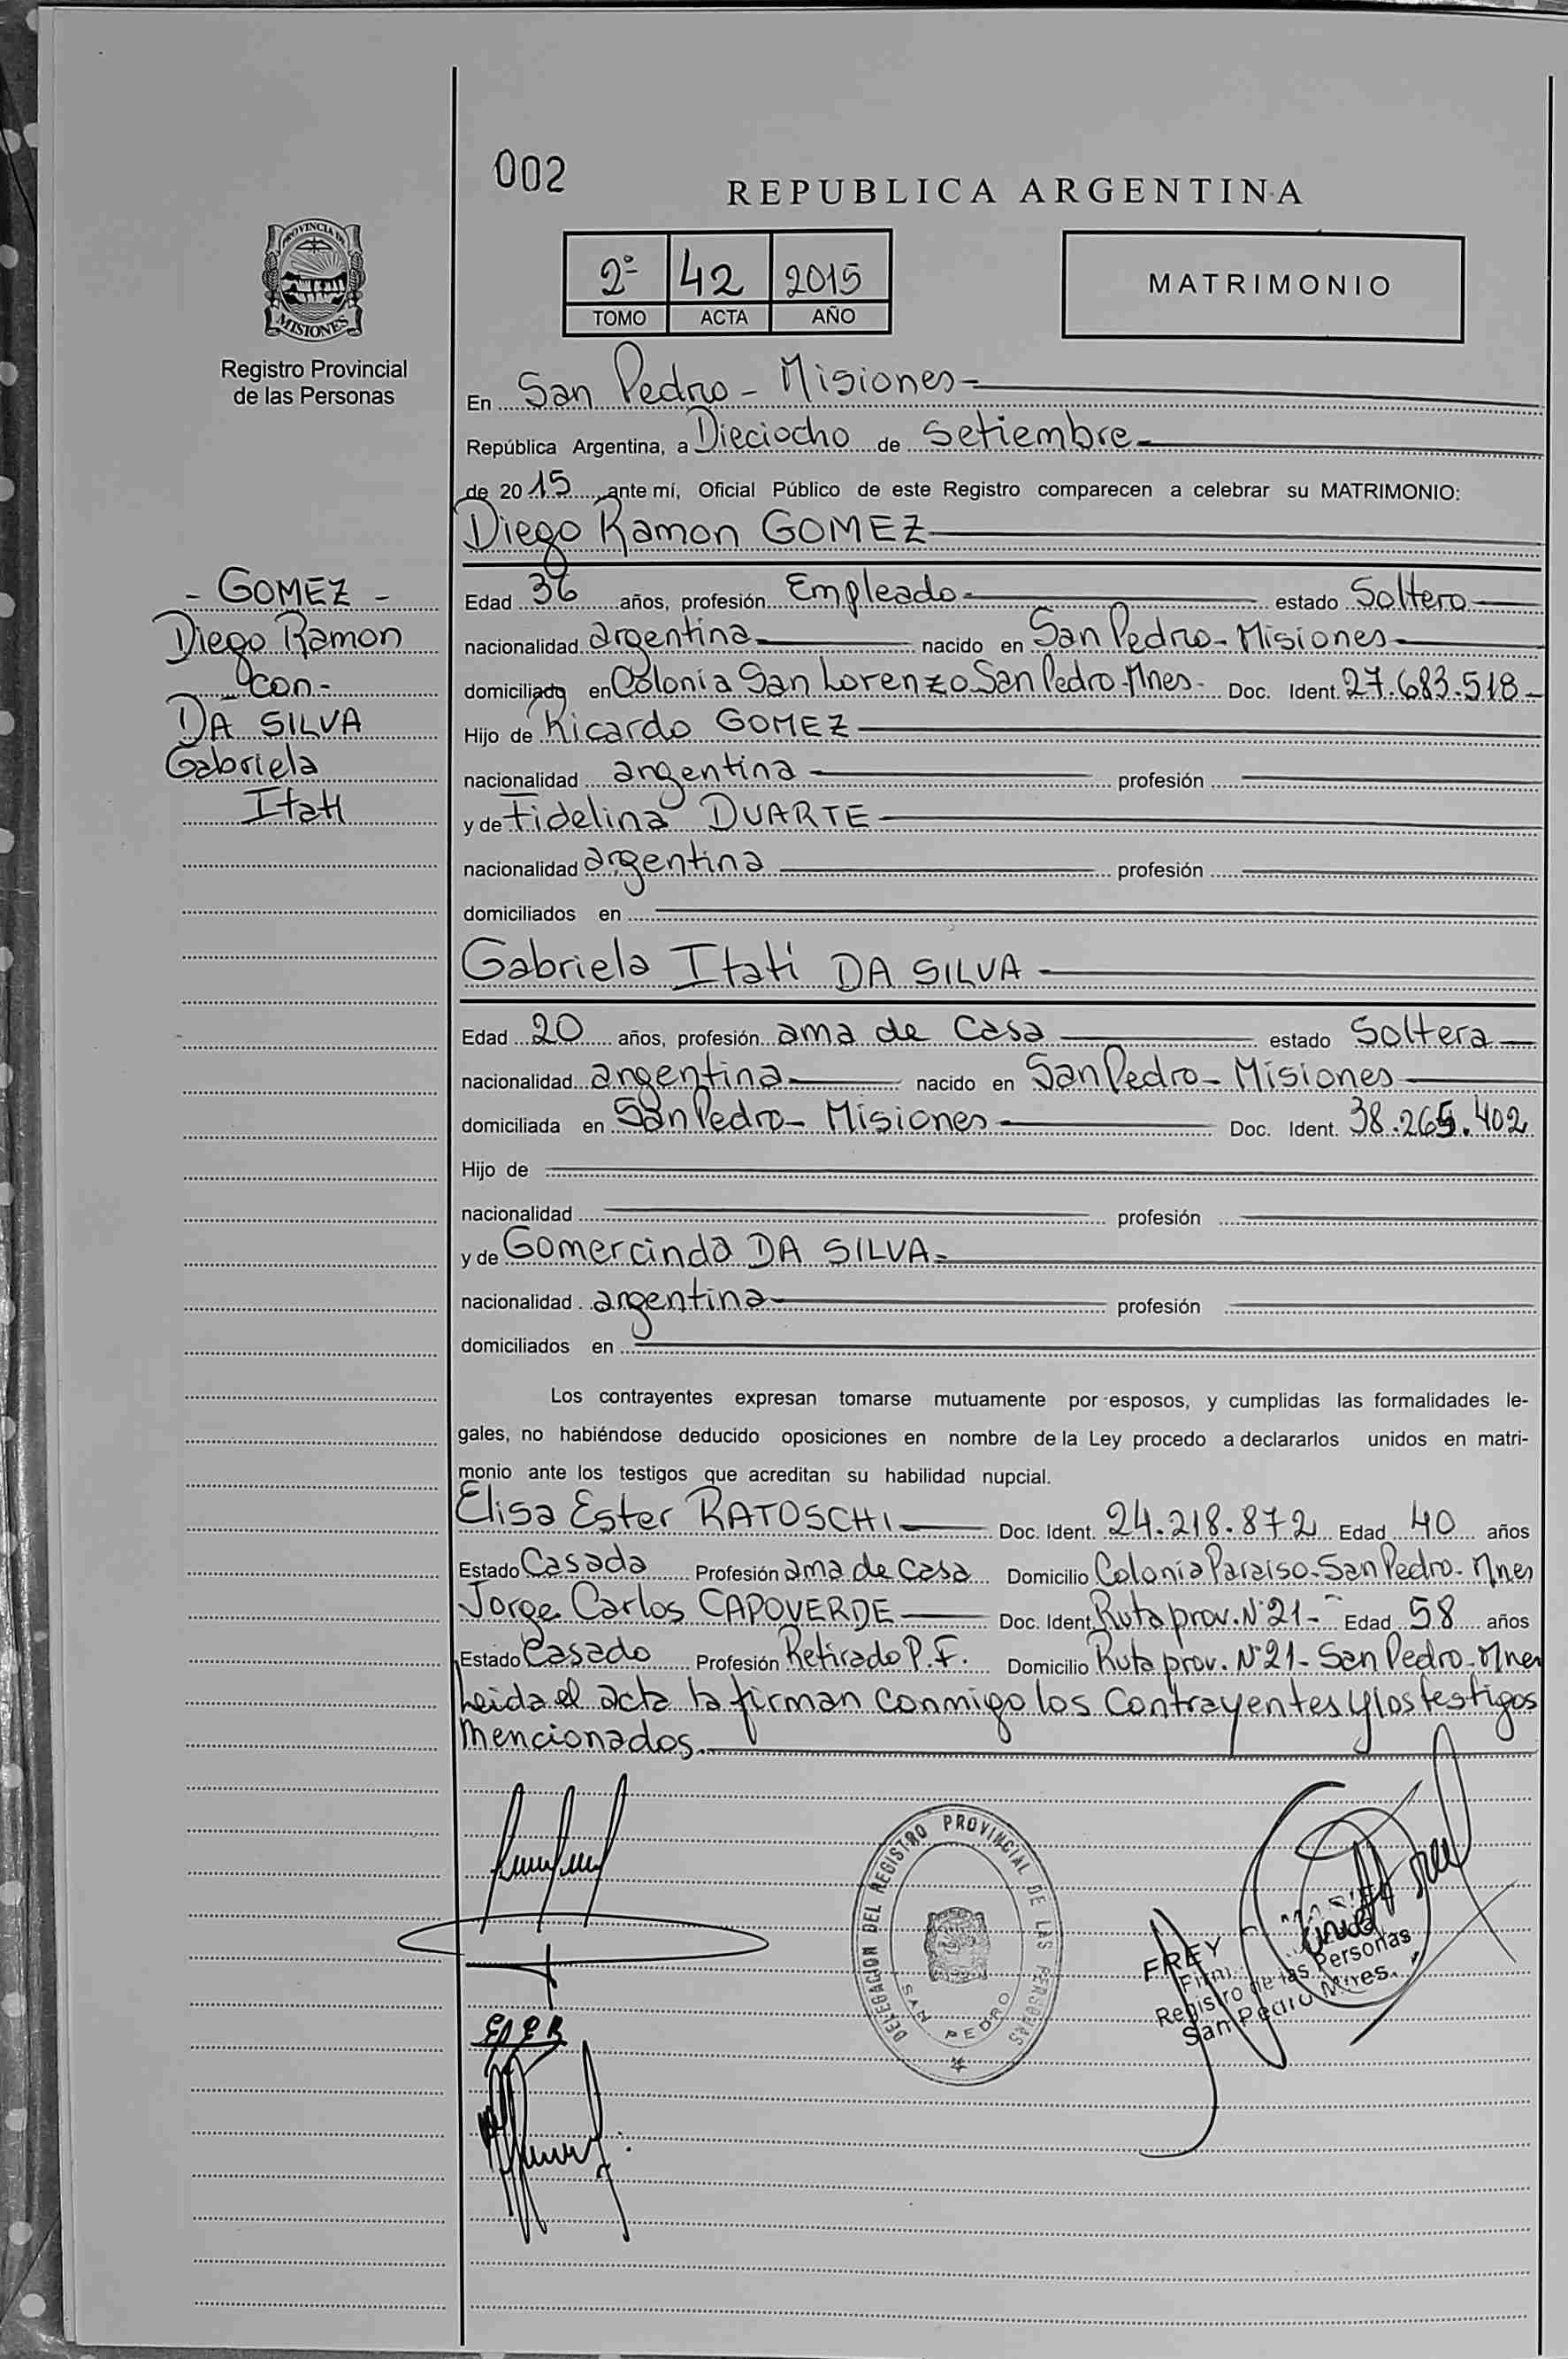 002
REPUBLICA ARGENTINA
2º 42 2015
TOMO ACTA AÑO
MATRIMONIO
PROVINCIA DE
MISIONES
Registro Provincial
de las Personas
En San Pedro - Misiones
República Argentina, a Dieciocho de Setiembre
de 2015 ante mí, Oficial Público de este Registro comparecen a celebrar su MATRIMONIO:
Diego Ramon GOMEZ
- GOMEZ -
Diego Ramon
- con -
DA SILVA
Gabriela
Itati
Edad 36 años, profesión Empleado estado Soltero
nacionalidad argentina nacido en San Pedro - Misiones
domiciliado en Colonia San Lorenzo San Pedro - Mnes - Doc. Ident. 27.683.518
Hijo de Ricardo GOMEZ
nacionalidad argentina profesión
y de Fidelina DUARTE
nacionalidad argentina profesión
domiciliados en
Gabriela Itati DA SILVA
Edad 20 años, profesión ama de Casa estado Soltera
nacionalidad argentina nacido en San Pedro - Misiones
domiciliada en San Pedro - Misiones Doc. Ident. 38.265.402
Hijo de
nacionalidad profesión
y de Gomercinda DA SILVA
nacionalidad argentina profesión
domiciliados en
Los contrayentes expresan tomarse mutuamente por esposos, y cumplidas las formalidades le-
gales, no habiéndose deducido oposiciones en nombre de la Ley procedo a declararlos unidos en matri-
monio ante los testigos que acreditan su habilidad nupcial.
Elisa Ester RATOSCHI Doc. Ident. 24.218.872 Edad 40 años
Estado Casada Profesión ama de Casa Domicilio Colonia Paraiso - San Pedro - Mnes
Jorge Carlos CAPOVERDE Doc. Ident Ruta prov. Nº 21 - Edad 58 años
Estado Casado Profesión Retirado P.F. Domicilio Ruta prov. Nº 21 - San Pedro - Mnes
Leida el acta la firman conmigo los Contrayentes y los testigos
mencionados.
DELEGACION DEL REGISTRO PROVINCIAL DE LAS PERSONAS
SAN PEDRO
FREY
Registro de las Personas
San Pedro Mnes.